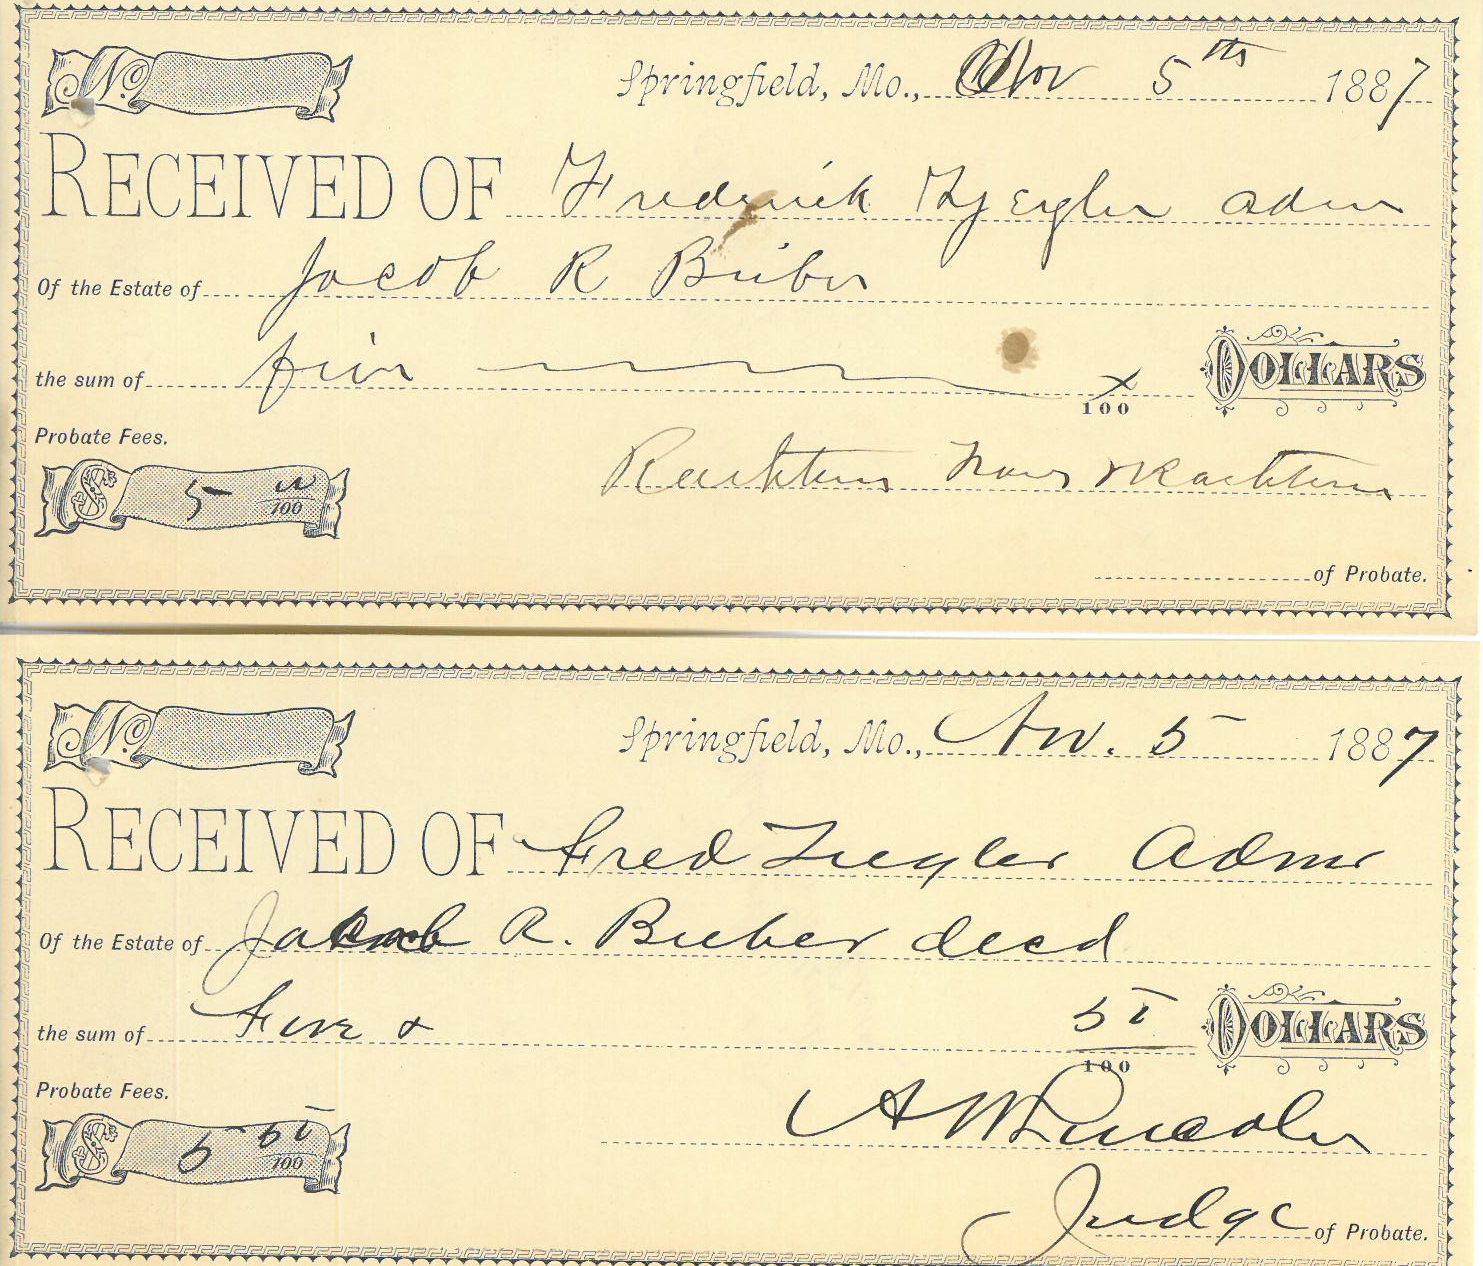 No.
Springfield, Mo., Nov 5th 1887
RECEIVED OF Frederick Zyegler adm
Of the Estate of Jacob R Bieber
the sum of five x/100 DOLLARS
Probate Fees.
$ 5 00/100
of Probate.
No.
Springfield, Mo., Nov. 5 1887
RECEIVED OF Fred Ziegler Admr
Of the Estate of Jacob R. Bieber decd
the sum of Five & /100 DOLLARS
Probate Fees.
$ 5 /100
A W Lincoln
Judge of Probate.